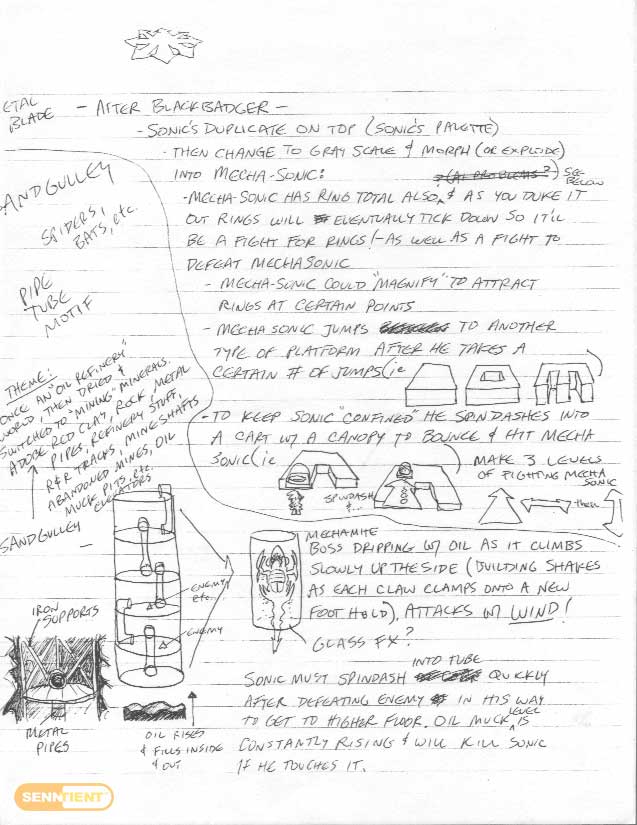 ETAL
BLADE
- AFTER BLACKBADGER -
- SONIC'S DUPLICATE ON TOP (SONIC'S PALETTE)
- THEN CHANGE TO GRAY SCALE & MORPH (OR EXPLODE)
INTO MECHA-SONIC: ?(AI PROBLEMS?) SEE
BELOW
- MECHA-SONIC HAS RING TOTAL ALSO, & AS YOU DUKE IT
OUT RINGS WILL EVENTUALLY TICK DOWN SO IT'LL
BE A FIGHT FOR RINGS! - AS WELL AS A FIGHT TO
DEFEAT MECHASONIC
- MECHA-SONIC COULD "MAGNIFY" TO ATTRACT
RINGS AT CERTAIN POINTS
- MECHA SONIC JUMPS TO ANOTHER
TYPE OF PLATFORM AFTER HE TAKES A
CERTAIN # OF JUMPS (ie
- TO KEEP SONIC "CONFINED" HE SPINDASHES INTO
A CART W/ A CANOPY TO BOUNCE & HIT MECHA
SONIC (ie
SPINDASH
&...
MAKE 3 LEVELS
OF FIGHTING MECHA
SONIC
then
ANDGULLEY
SPIDERS,
BATS, etc.
PIPE
TUBE
MOTIF
THEME:
ONCE AN "OIL REFINERY"
WORLD, THEN DRIED &
SWITCHED TO "MINING" MINERALS.
ADOBE RED CLAY, ROCK, METAL
PIPES, REFINERY STUFF,
R&R TRACKS, MINE SHAFTS
ABANDONED MINES, OIL
MUCK PITS, etc.
ELEVATORS
SANDGULLEY
ENEMY
etc..
ENEMY
IRON
SUPPORTS
METAL
PIPES
OIL RISES
& FILLS INSIDE
& OUT
MECHAMITE
BOSS DRIPPING W/ OIL AS IT CLIMBS
SLOWLY UP THE SIDE (BUILDING SHAKES
AS EACH CLAW CLAMPS ONTO A NEW
FOOT HOLD). ATTACKS W/ WIND!
GLASS FX?
SONIC MUST SPINDASH INTO TUBE QUICKLY
AFTER DEFEATING ENEMY IN HIS WAY
TO GET TO HIGHER FLOOR. OIL MUCK LEVEL IS
CONSTANTLY RISING & WILL KILL SONIC
IF HE TOUCHES IT.
SENNTIENT